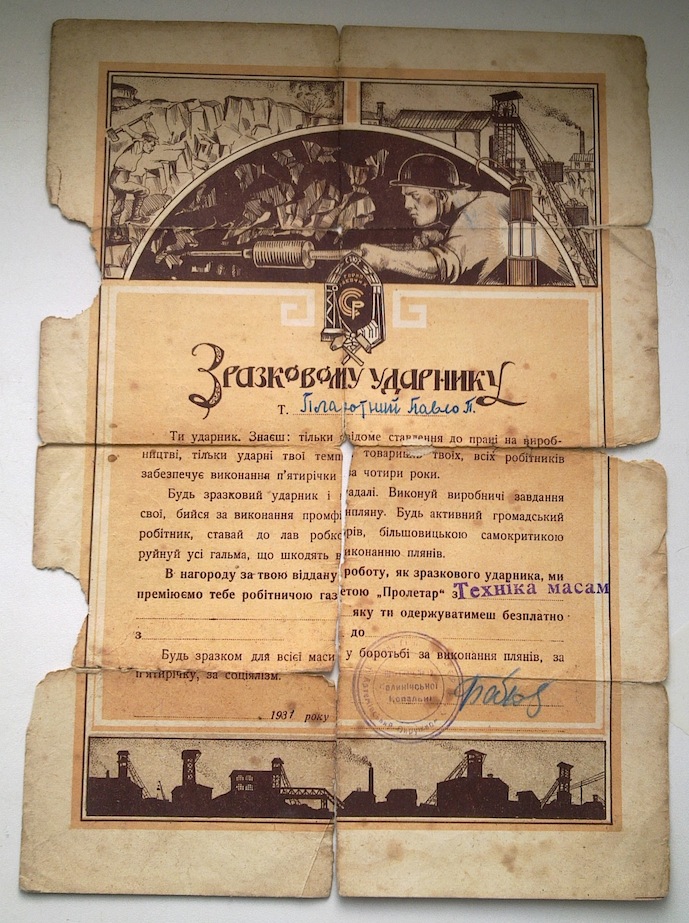 Зразковому ударнику
т. Павло П.
Ти ударник. Знаєш: тільки свідоме ставлення до праці на вироб-
ництві, тільки ударні твої темпи товаришів твоїх, всіх робітників
забезпечує виконання п'ятирічки за чотири роки.
Будь зразковий ударник і надалі. Виконуй виробничі завдання
свої, бийся за виконання промфінпляну. Будь активний громадський
робітник, ставай до лав робкорів, більшовицькою самокритикою
руйнуй усі гальма, що шкодять виконанню плянів.
В нагороду за твою віддану роботу, як зразкового ударника, ми
преміюємо тебе робітничою газетою „Пролетар" з Техніка масам
яку ти одержуватимеш безплатно
з до
Будь зразком для всієї маси у боротьбі за виконання плянів, за
п'ятирічку, за соціялізм.
копальні
1931 року